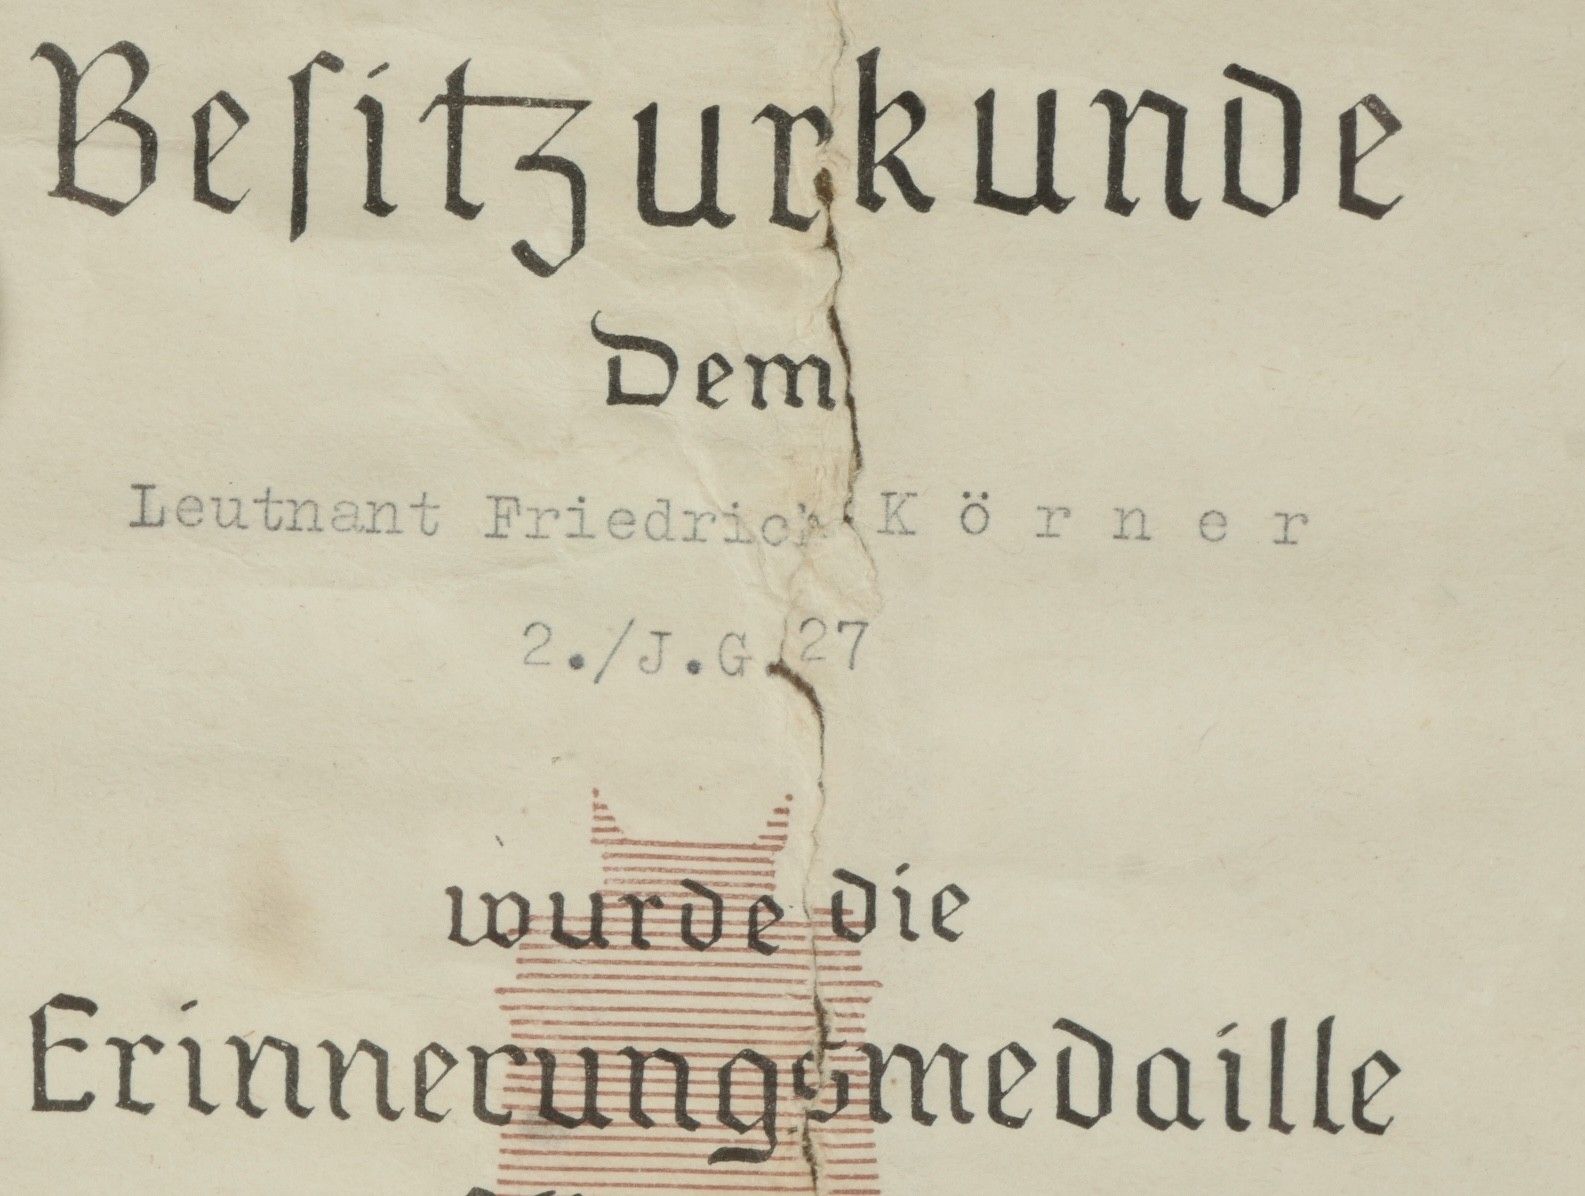 Beſitzurkunde
Dem
Leutnant Friedrich Körner
2./J.G.27
wurde die
Erinnerungsmedaille